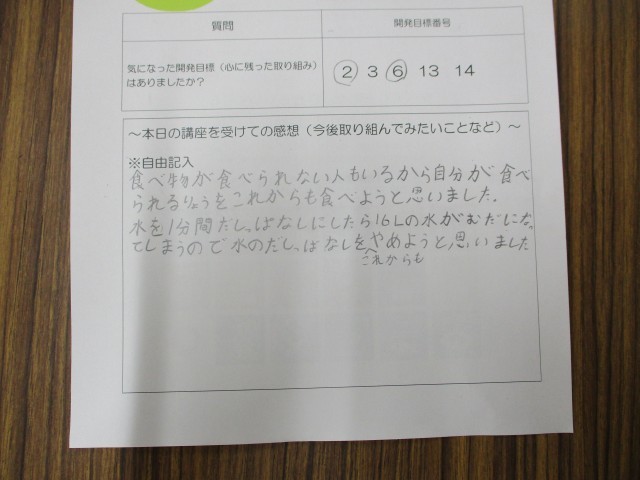 質問
開発目標番号
気になった開発目標(心に残った取り組み)
はありましたか?
2 3 6 13 14
~本日の講座を受けての感想(今後取り組んでみたいことなど)~
※自由記入
食べ物が食べられない人もいるから自分が食べ
られるりょうをこれからも食べようと思いました.
水を1分間だしっぱなしにしたら16Lの水がむだになっ
てしまうので水のだしっぱなしをやめようと思いました
これからも